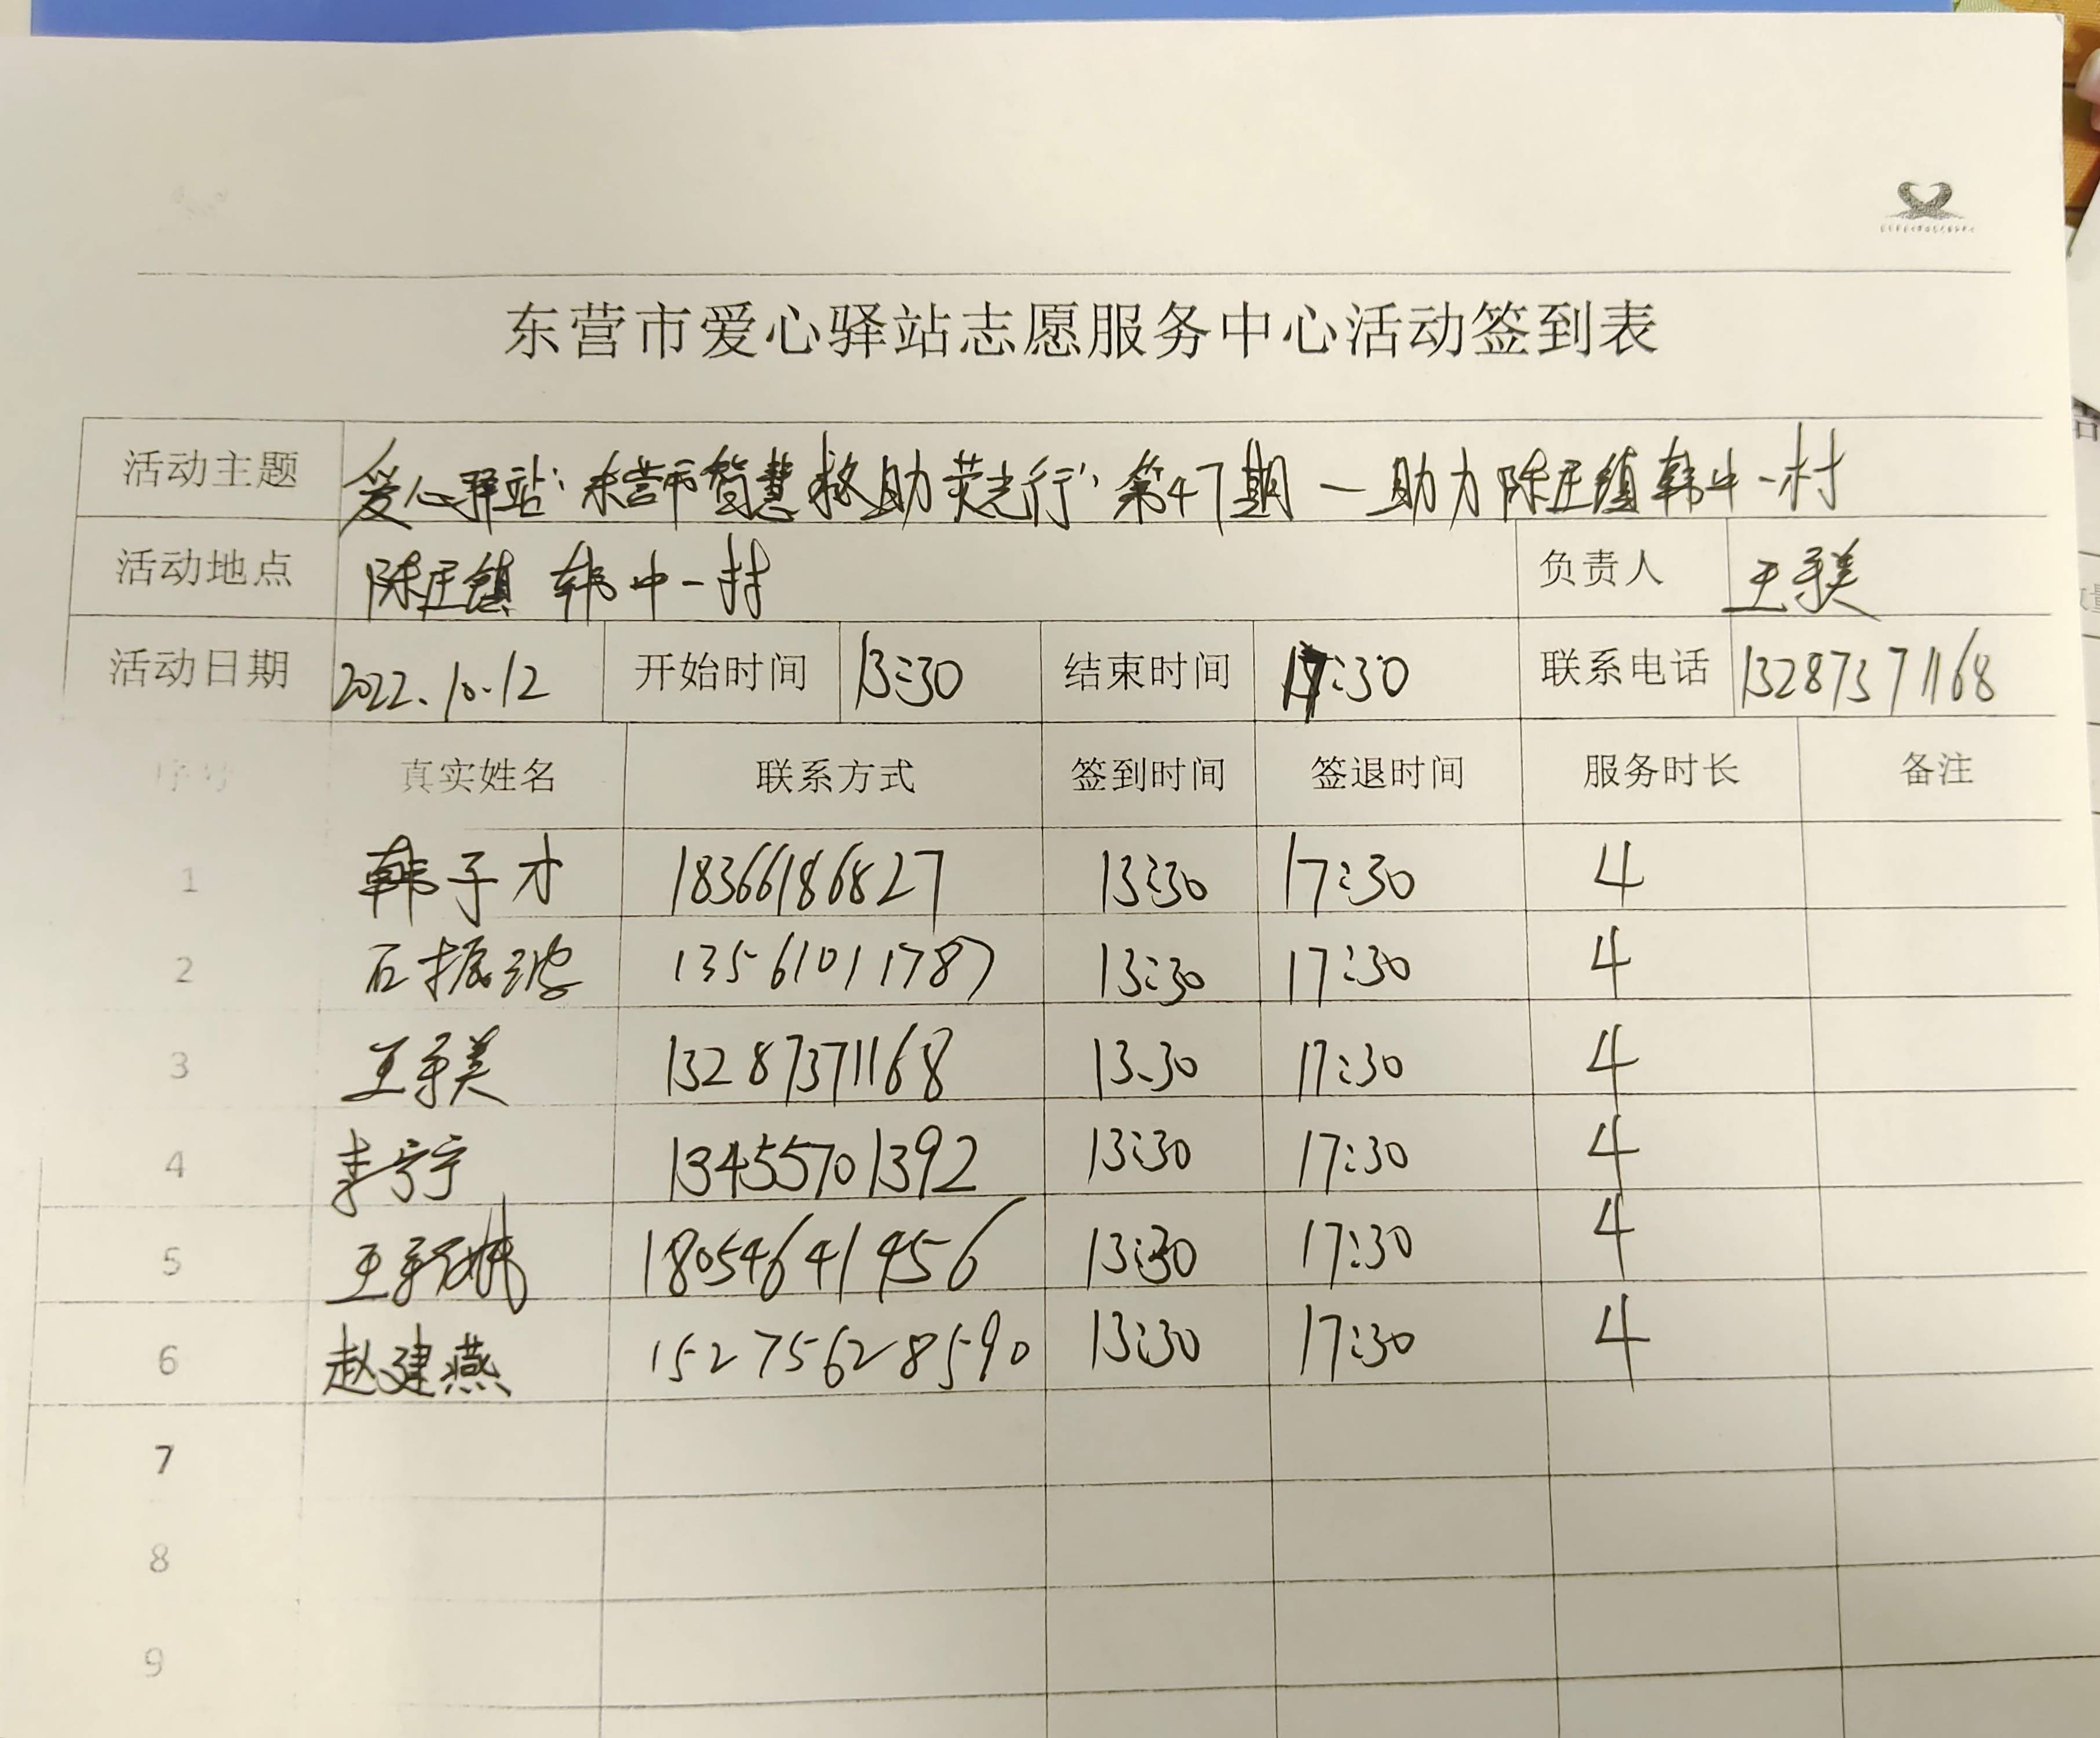 东营市爱心驿站志愿服务中心活动签到表
活动主题 爱心驿站“东营市智慧救助荧光行”第47期—助力陈庄镇韩中一村
活动地点 陈庄镇 韩中一村 负责人 王秀美
活动日期 2022.10.12 开始时间 13:30 结束时间 17:30 联系电话 13287371168
序号 真实姓名 联系方式 签到时间 签退时间 服务时长 备注
1 韩子才 18366186827 13:30 17:30 4
2 石振波 13561011787 13:30 17:30 4
3 王秀美 13287371168 13.30 17:30 4
4 李宁宁 13455701392 13:30 17:30 4
5 18054641456 13:30 17:30 4
6 赵建燕 15275628590 13:30 17:30 4
7
8
9